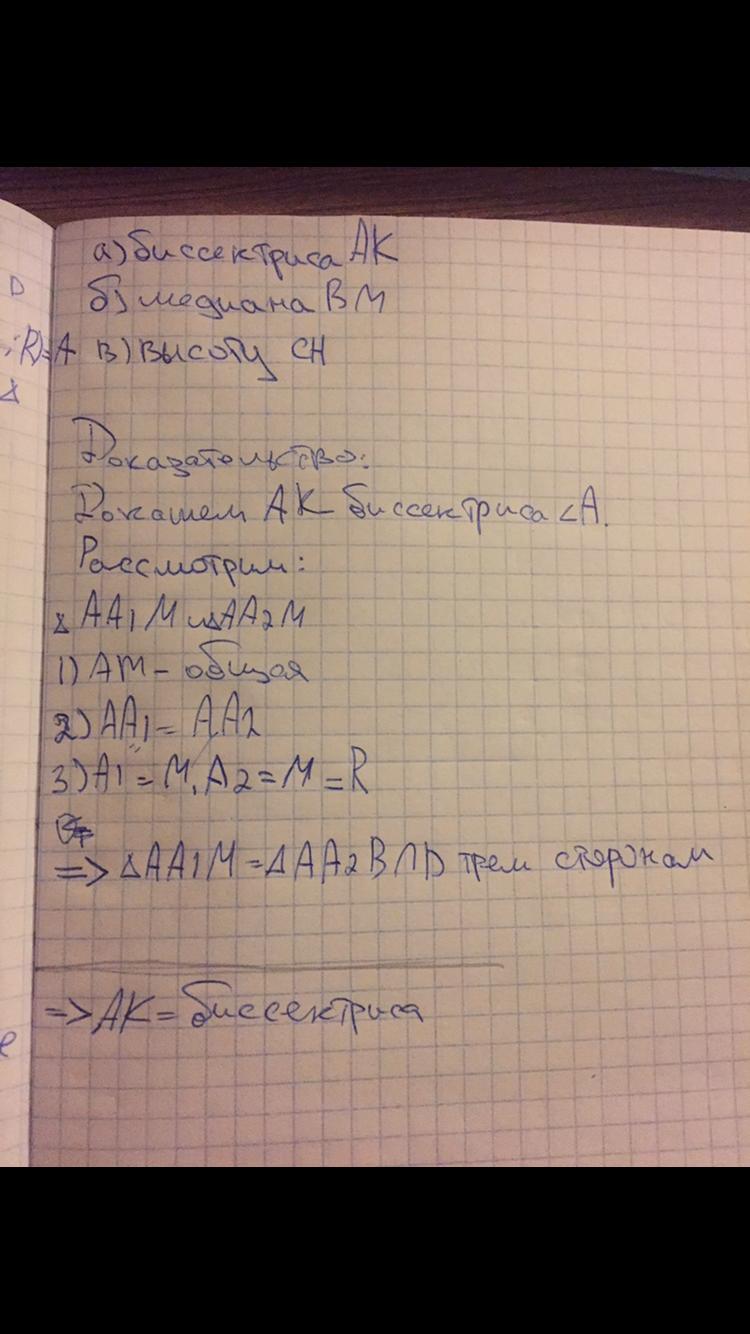 а) биссектриса АК
D
б) медиана ВМ
R)=A в) высоту СН
Δ
Доказательство:
Докажем АК биссектриса ∠А.
Рассмотрим:
Δ АА1М и ΔАА2М
1) АМ – общая
2) АА1 = АА2
3) А1 = М, А2 = М = R
=> ΔАА1М = ΔАА2В ПО трем сторонам
=> АК = биссектриса
е